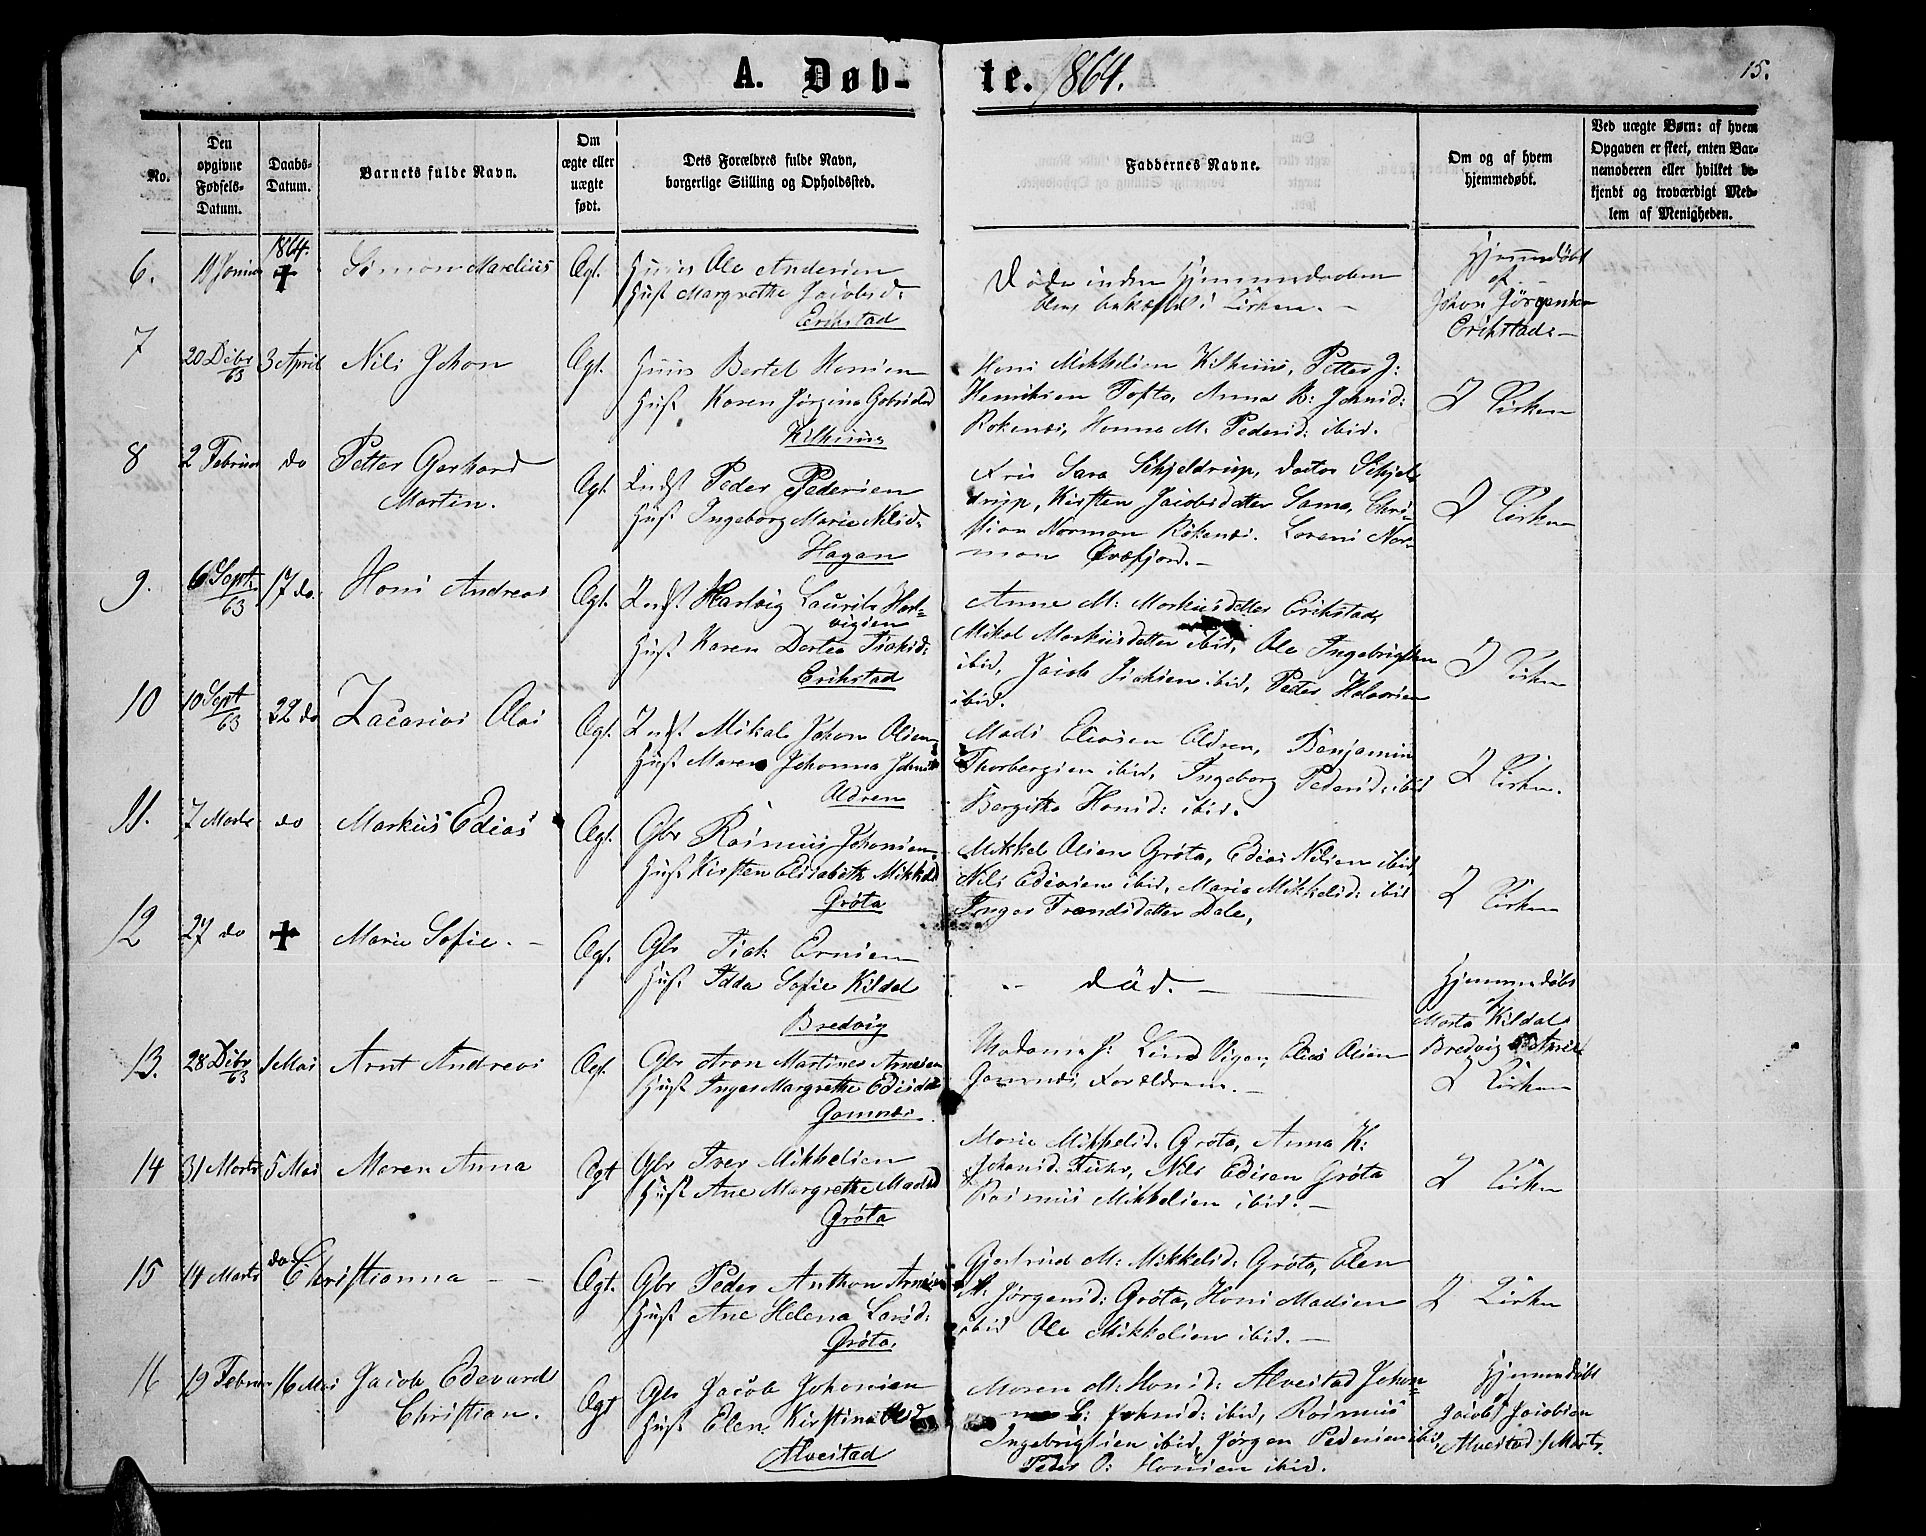 A. Døb-
te. 1864.
15.
No.
Den opgivne Fødsels-Datum.
Daabs-Datum.
Barnets fulde Navn.
Om ægte eller uægte født.
Dets Forældres fulde Navn, borgerlige Stilling og Opholdssted.
Faddernes Navne.
Om og af hvem hjemmedøbt.
Ved uægte Børn: af hvem Opgaven er skeet, enten Barnemoderen eller hvilket bekjendt og troværdigt Medlem af Menigheden.
1864.
6. 19 † Simon Marelius Ægt. Ole Andersen
Hust Margrethe Jacobsd:
Erikstad
Døde inden Hjemmedaaben
blev i Kirken. -
Hjemmedøbt
af
Johan Jørgensen
Erikstad -
7 20 Dcbr/63 3 April Nils Johan Ægt. Bertel Hansen
Hust Karen Jørgina
Kilhuus
Hans Mikkelsen Kilhuus, Petter J:
Henriksen Tofta, Anna B: Johnsd:
Rokenes, Hanna M. Pedersd: ibid.
I Kirken
8 2 Februar do Petter Gerhard
Martin.
Ægt. Indst Peder Pedersen
Hust Ingeborg Marie Nilsd:
Hagan
Sara Schjeldrup, Schjel-
drup, Kirsten Jacobsdatter Sama, Chri-
stian Normon Rökenes. Normon
I Kirken
9. 6 Sept./63 17 do. Hans Andreas Ægt. Indst Hartvig Laurits Hart-
vigsen
Hust Karen Dortea Isaksd:
Erikstad
Anne M: Markusdatter Erikstad,
Mikal Markusdatter ibid, Ole Ingebrigtsen
ibid, Jacob Isaksen ibid, Peder
ibid.
I Kirken
10 10 Sept/63 22 do Zacarias Olai Ægt. Indst. Mikal Johan Olsen
Hust Maren Johanna Johnsd
Aldren
Mads Eliasen Aldren, Benjamin
Thorbergsen ibid, Ingeborg Pedersd: ibid
Bergitha Hansd: ibid.
I Kirken.
11. 7 Marts do Markus Edias Ægt. Gbr Rasmus Johansen
Hust Kirsten Elisabeth Mikkelsd
Gröta
Mikkel Olsen Gröta, Edias Nilsen ibid,
Nils Ediasen ibid, Marie Mikkelsd: ibid
Inger Trondsdatter Dale,
I Kirken
12 27 do † Marie Sofie. - Ægt. Gbr Isak Arnsen
Hust Idda Sofie Kildal
Bredvig
Död. -
Hjemmedøbt
af
Marta Kildal
Bredvig April
13. 28 Dcbr/63 1 Mai Arnt Andreas Ægt. Gbr Aron Martines Arnesen
Hust Inger Margrethe
Gamnes.
Lind Vigen, Elias Olsen
Gamnes, Forældrene. -
I Kirken
14 31 Marts 5 Mai Maren Anna Ægt Gbr Iver Mikkelsen
Hust Ane Margrethe Madsd
Gröta
Marie Mikkelsd. Gröta, Anna K:
Johansd: Nils Edisen Gröta
Rasmus Mikkelsen ibid. -
I Kirken
15 14 Marts do Christianna - - Ægt. Gbr Peder Anthon Arnesen
Hust Ane Helena Larsd:
Gröta,
Gjertrud M: Mikkelsd: Gröta, Elen
Jørgensd: Gröta, Hans Madsen
ibid Ole Mikkelsen ibid. -
I Kirken
16 19 Februar 16 Mai Jacob Edevard
Christian.
Ægt Gbr Jacob Johansen
Hust Elen Kirstina
Alvestad
Maren M: Hansd: Alvestad Johan-
na L: Johnsd: ibid, Rasmus
Ingebrigtsen ibid, Jørgen Pedersen ibid,
Peder O: Hansen ibid.
Hjemmedøbt
af
Jacob Jacobsen
Alvestad Marts.